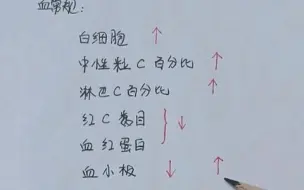 血常规：
白细胞 ↑
中性粒C百分比 ↑
淋巴C百分比 ↑
红C数目 } ↓
血红蛋目
血小板 ↓ ↑